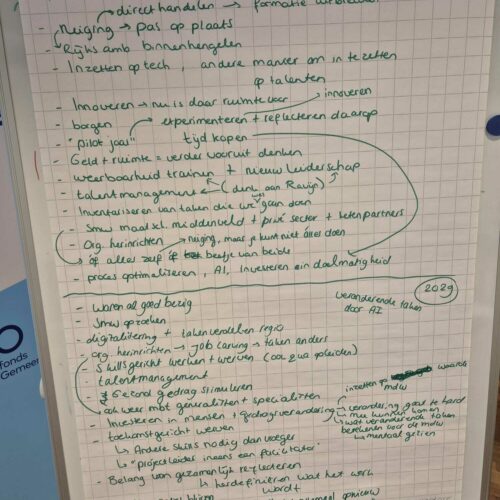 direct handelen →
- neiging → pas op plaats
- Rijks amb binnenhengelen
- Inzetten op tech, andere manier om in te zetten
op talenten
- Innoveren → nu is daar ruimte voor
innoveren
- borgen
experimenteren + reflecteren daarop
- "pilot jaar"
tijd kopen
- Geld + ruimte = verder vooruit denken
- weerbaarheid trainen + nieuw leiderschap
- talentmanagement (denk aan Ravijn)
- Inventariseren van taken die we gaan doen
- Smw maal xl. middenveld + privé sector + ketenpartners
- Org. herinrichten → neiging, maar je kunt niet álles doen
- óf alles zelf óf beetje van beide
- proces optimaliseren, AI, Investeren in doelmatigheid
2029
- Waren al goed bezig
veranderende taken
door AI
- Smw opzoeken
- digitalitering + taken verdelen regio
- org. herinrichten → job carving → taken anders
- Skillsgericht werken + werven (ook qua opleiden)
- talentmanagement
- gedrag stimuleren
- ook weer mbt generalisten + specialisten
inzetten op waarde
mdw
- Investeren in mensen + gedragsverandering
→ verandering gaat te hard
- toekomstgericht werven
mee kunnen komen
→ wat veranderende taken
betekenen voor de mdw
↳ Andere skills nodig dan vroeger
↳ mentaal gezien
↳ "projectleider ineens een facilitator"
- Belang van gezamenlijk reflecteren
↳ herdefiniëren wat het werk
wordt
fonds
Gemeen